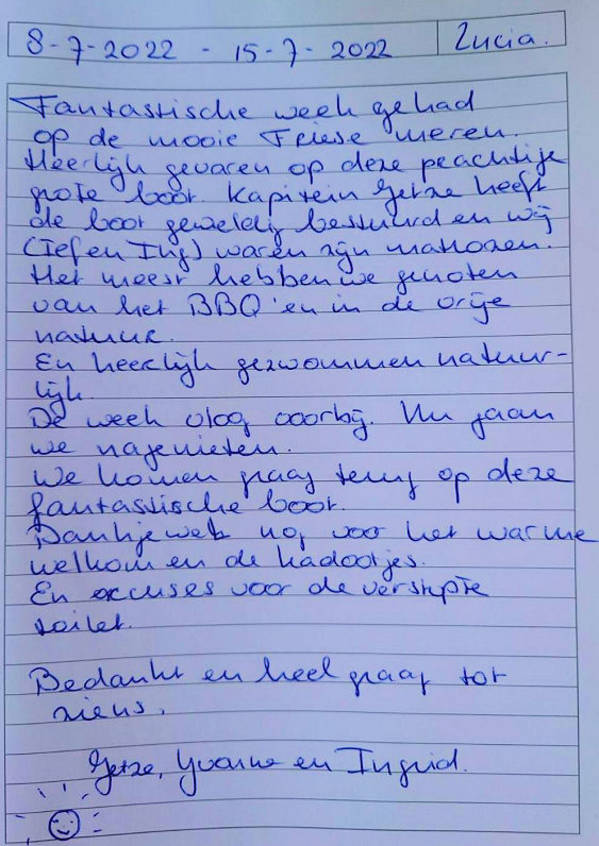 8-7-2022 - 15-7-2022 Lucia.
Fantastische week gehad
op de mooie Friese meren.
Heerlijk gevaren op deze prachtije
grote boot. Kapitein Jetze heeft
de boot geweldig bestuurd en wij
(Ief en Ing) waren zijn matrozen.
Het meest hebben we genoten
van het BBQ'en in de vrije
natuur.
En heerlijk gezwommen natuur-
lijk.
De week vloog voorbij. Nu gaan
we nagenieten.
We komen graag terug op deze
fantastische boot.
Dankjewel nog voor het warme
welkom en de kadootjes.
En excuses voor de verstopte
toilet.
Bedankt en heel graag tot
ziens.
Jetze, Yvonne en Ingrid.